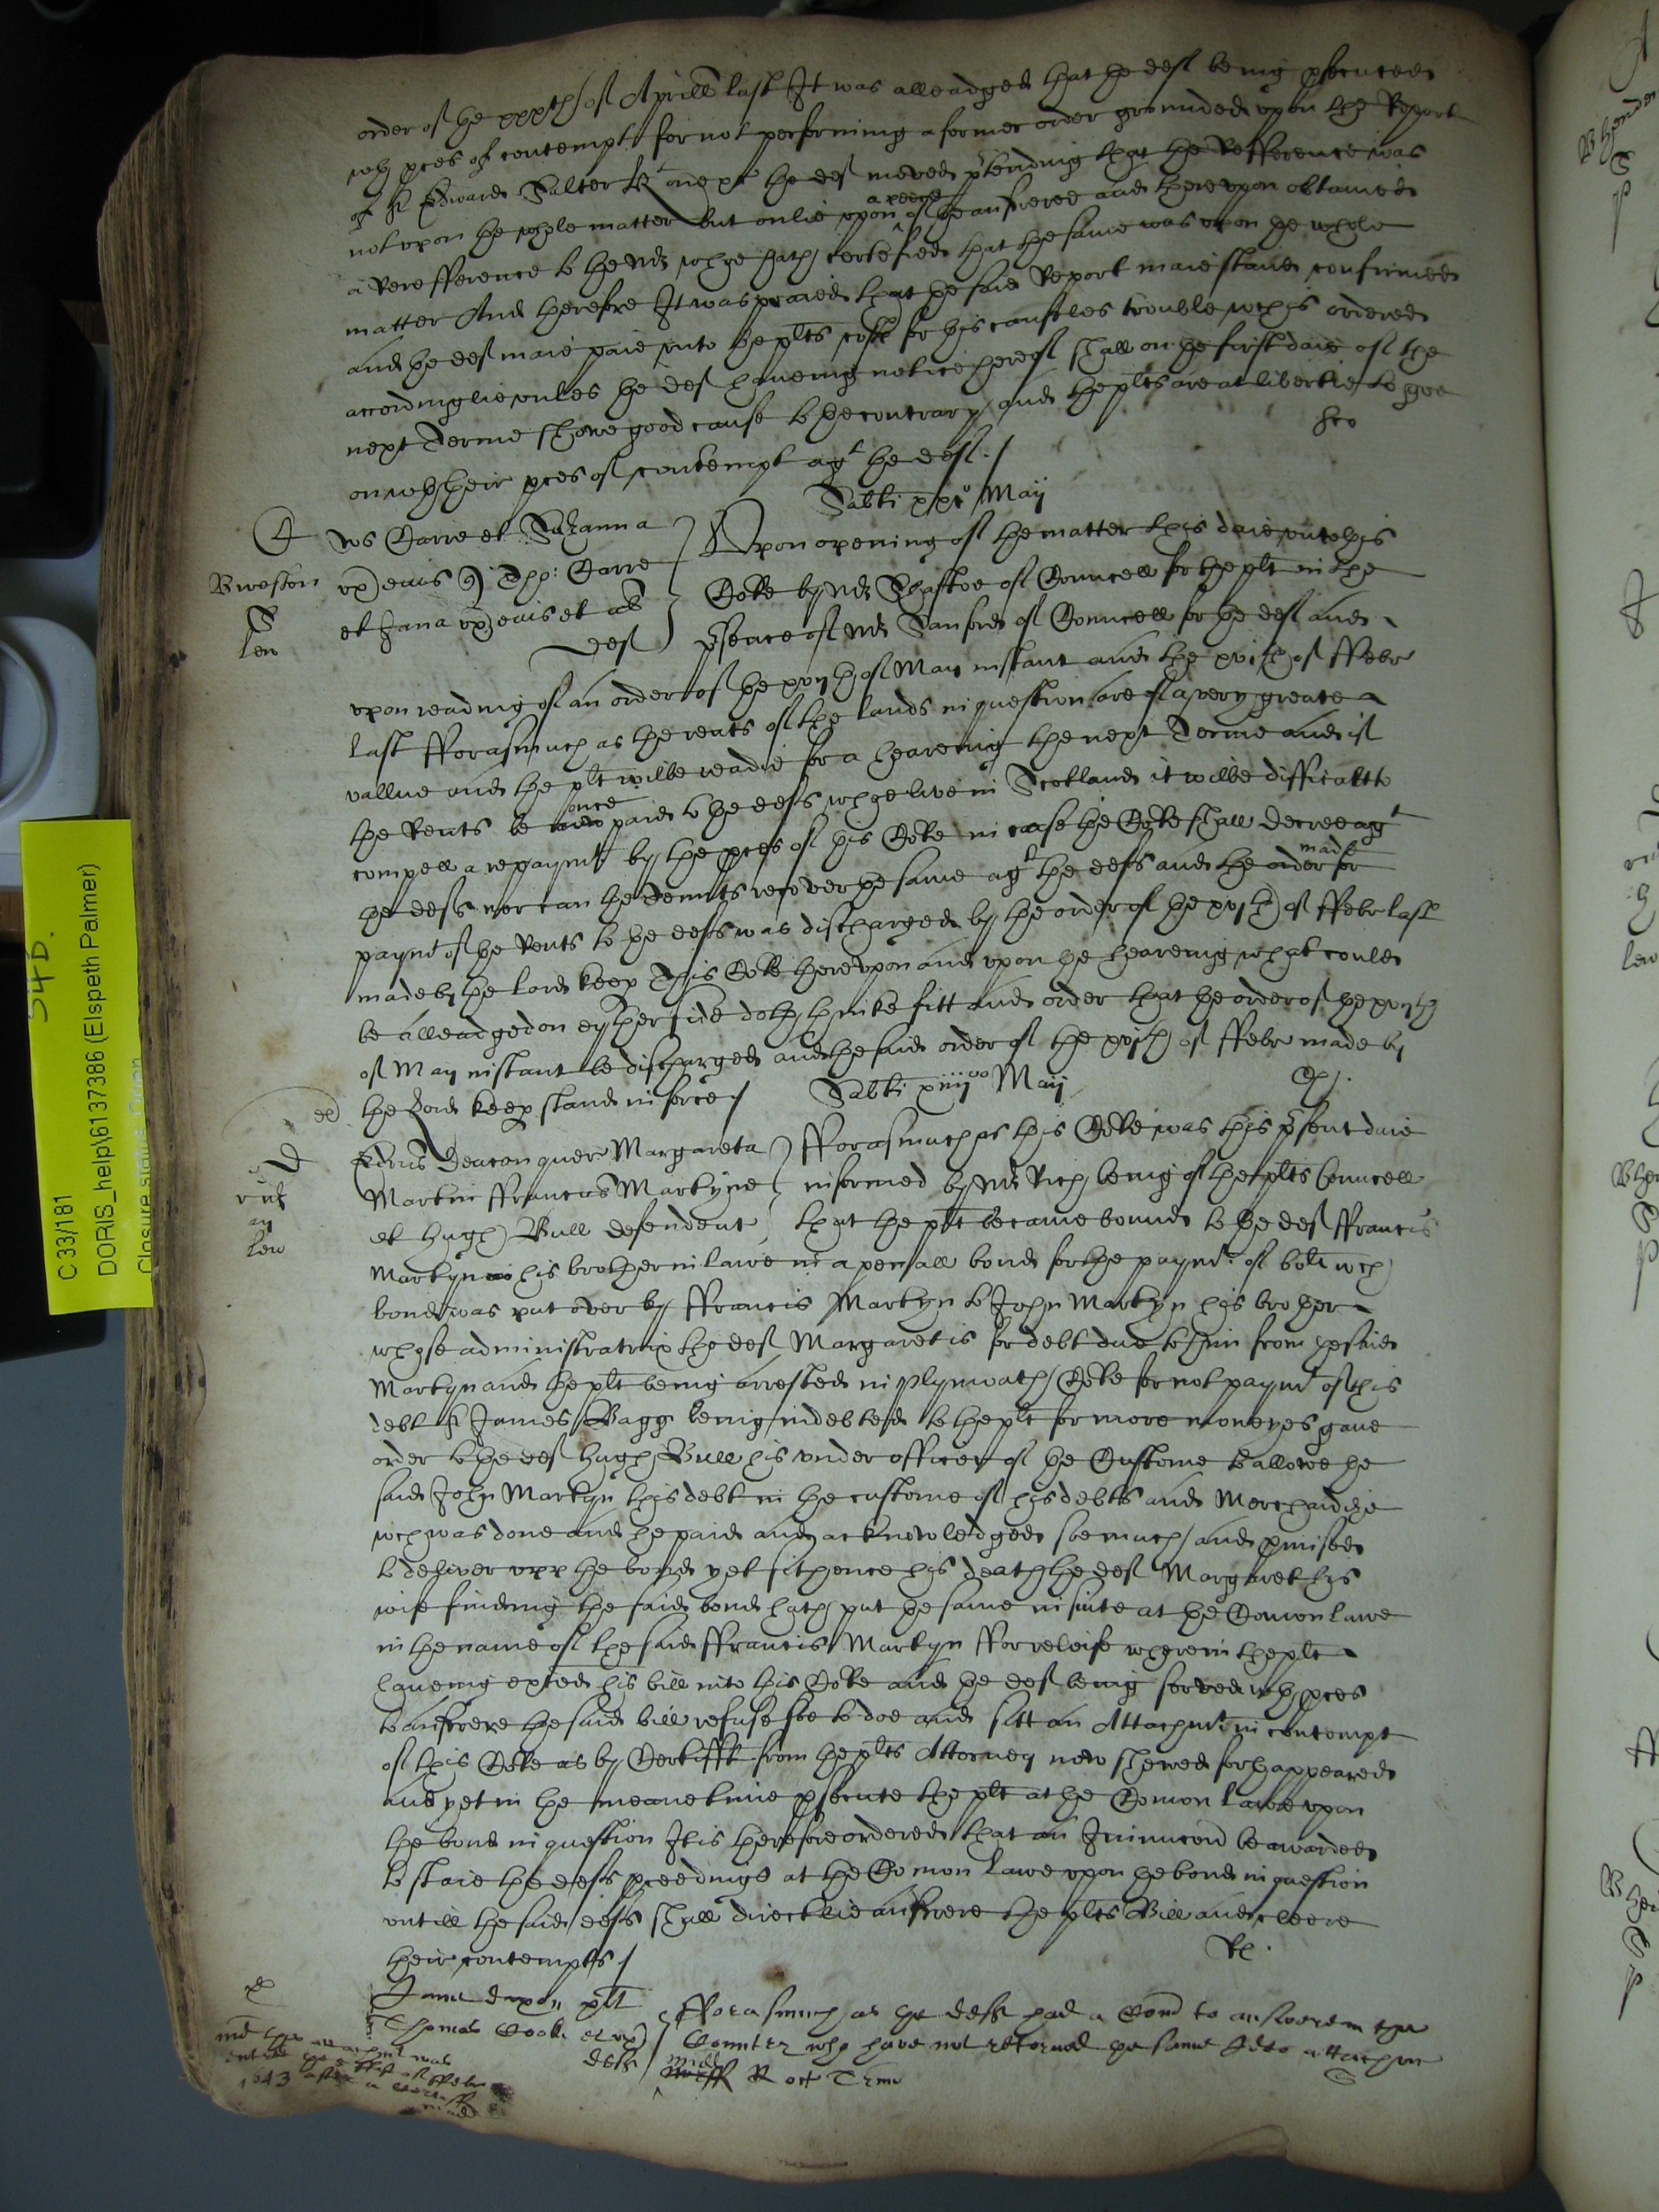 order of the xxxth of Aprill last It was alleadged that the deft being psecuted
wth pces of contempt for not performing a former order grounded upon the Report
of Sr Edward Salter kt one of the mrs moved ptending that the Refference was
not upon the whole matter but onlie upon a peece of the answere and thereupon obtained
a Rerefference to the Mr whoe hath certefied that the same was upon the whole
matter And therefore It was praied that the said Report maie stand confirmed
and the deft maie paie unto the plts costs for his causeles trouble wch is ordered
accordinglie unles the deft haveing notice hereof shall on the first daie of the
next Terme shewe good cause to the contrary and the plts are at libertie to goe
on wth their pces of contempt agt the deft./
Sabti xxo Maij
Carre et Suzanna
ux eius Tho: Carre
et Jana ux eius et al
deft
Upon opening of the matter this daie unto this
Cote by Mr Shaftoe of Councell for the plt in the
psence of Mr Sanford of Councell for the deft and
upon reading of an order of the xvijth of May instant and the xvjth of ffebr
last fforasmuch as the rents of the lands in question are of a very greate
vallue and the plt wilbe readie for a heareing the next Terme and if
the Rents be once paid to the defts whoe live in Scotland it wilbe difficult to
compell a repaymt by the pces of this Cote in case the Cote shall decree agt
the defts nor can the Tennts recover the same agt the defts and the order made for
paymt of the Rents to the defts was discharged by the order of the xvjth of ffebr last
made by the Lord keep This Cote thereupon and upon the heareing what could
be alleadged on eyther side doth thinke fitt and order that the order of the xvijth
of May instant be discharged and the said order of the xvjth of ffebr made by
the Lord keep stand in force/
Sabti xiiijo Maij
Edrus Deacon quer Margareta
Martin ffrancis Martyne
et Hugh Bull defendent
fforasmuch as this Cote was this psent daie
informed by Mr Rich being of the plts Councell
that the plt became bound to the deft ffrancis
Martyn his brother in lawe in a penall bond for the paymt of wch
bond was put over by ffrancis Martyn to John Martyn his brother
whose administratrix the deft Margaret is for debt due to him from the said
Martyn and the plt being arrested in Plymoath Cote for not paymt of this
debt Sr James Bagg being indebted to the plt for more moneyes gave
order to the deft Hugh Bull his under officer of the Custome to allowe the
said John Martyn this debt in the custome of his debts and Merchandize
wch was done and he paid and acknowledged soe much and pmised
to deliver upp the bond yet sithence his death the deft Margaret his
wife finding the said bond hath put the same in suite at the Comon lawe
in the name of the said ffrancis Martyn ffor releife wherein the plt
haveing exhted his bill into this Cote and the deft being served wth pces
to answere the said bill refuse soe to doe and sitt an Attachmt in contempt
of this Cote as by Certifft from the plts Attorney now shewed forth appeared
and yet in the meane time psecute the plt at the Comon lawe upon
the bond in question It is therefore ordered that an Iniunccon be awarded
to staie the defts pceedings at the Comon lawe upon the bond in question
untill the said defts shall directlie answere the plts Bill and cleere
their contempts./
plt
Thomas Cooke et ux
defts
fforasmuch as the defts had a Comd to answere in the
Country who have not retorned the same Ideo attachm
Midd R oct Trin
1643
C 33/181
DORIS_help\6137386 (Elspeth Palmer)
Closure status: Open